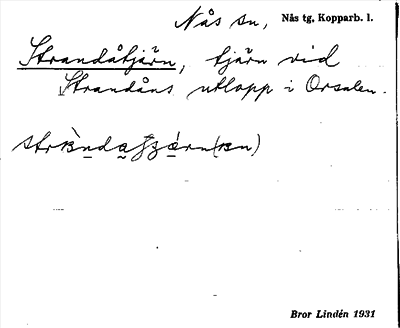 Nås sn, Nås tg, Kopparb. l.
Strandåtjärn, tjärn vid
Strandåns utlopp i Orsalen.
Bror Lindén 1931